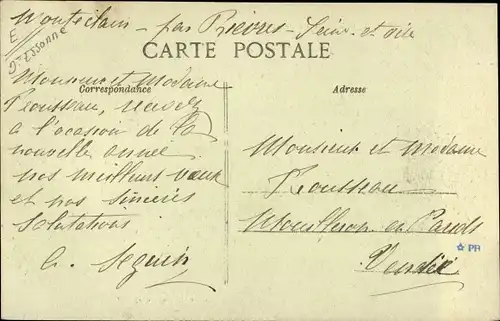 Montéclain - par Bièvres - Seine et Oise
E
Dt Essonne
CARTE POSTALE
Correspondance
Adresse
Monsieur et Madame
Rousseau, recevez
a l'occasion de la
nouvelle année
nos meilleurs vœux
et nos sincères
salutations
G. Seguin
Monsieur et Madame
Rousseau
Mouilleron en Pareds
Vendée
☆ PR